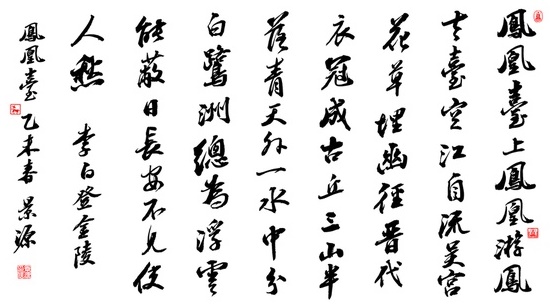 鳳凰臺上鳳凰游鳳
去臺空江自流吴宫
花草埋幽徑晋代
衣冠成古丘三山半
落青天外一水中分
白鷺洲總為浮雲
能蔽日長安不見使
人愁 李白登金陵
鳳凰臺 乙未春 景源